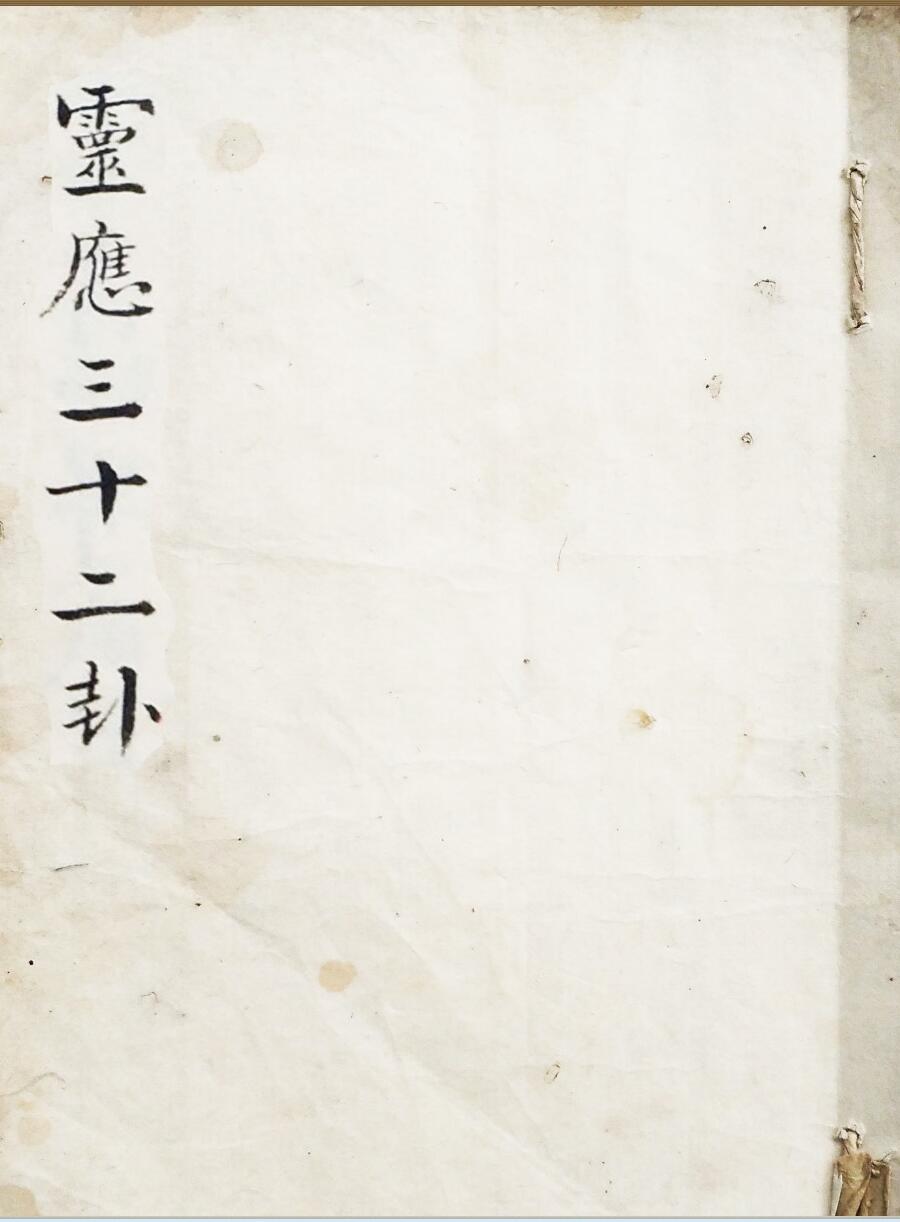 靈應三十二卦